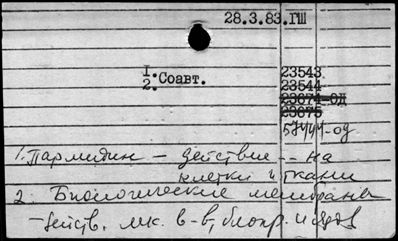 28.3.83.ГШ
1. Соавт. 23543
2. 23544
23674-ОД
23675
57444-од
1. Пармидин - действие -- на
клетки и ткани
2. Биологические мембраны
- действ. лек. в-в,